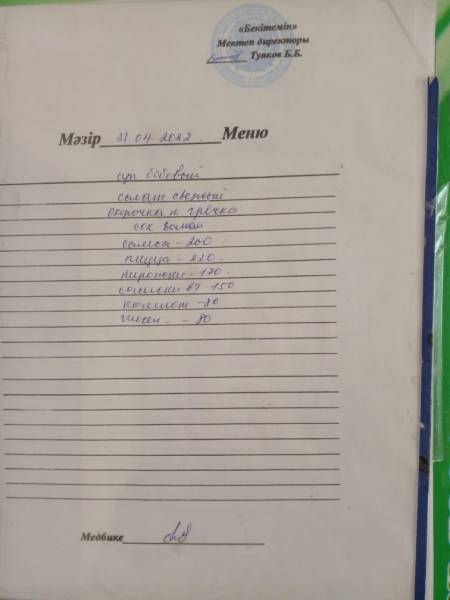 «Бекітемін»
Мектеп директоры
Туяков Б.Б.
Мәзір 21.04.2022 Меню
суп бобовый
салат свежий
гречка
сок
самса - 200
пицца - 220.
пирожки - 170.
150
компот - 80
кисель - 80
Медбике